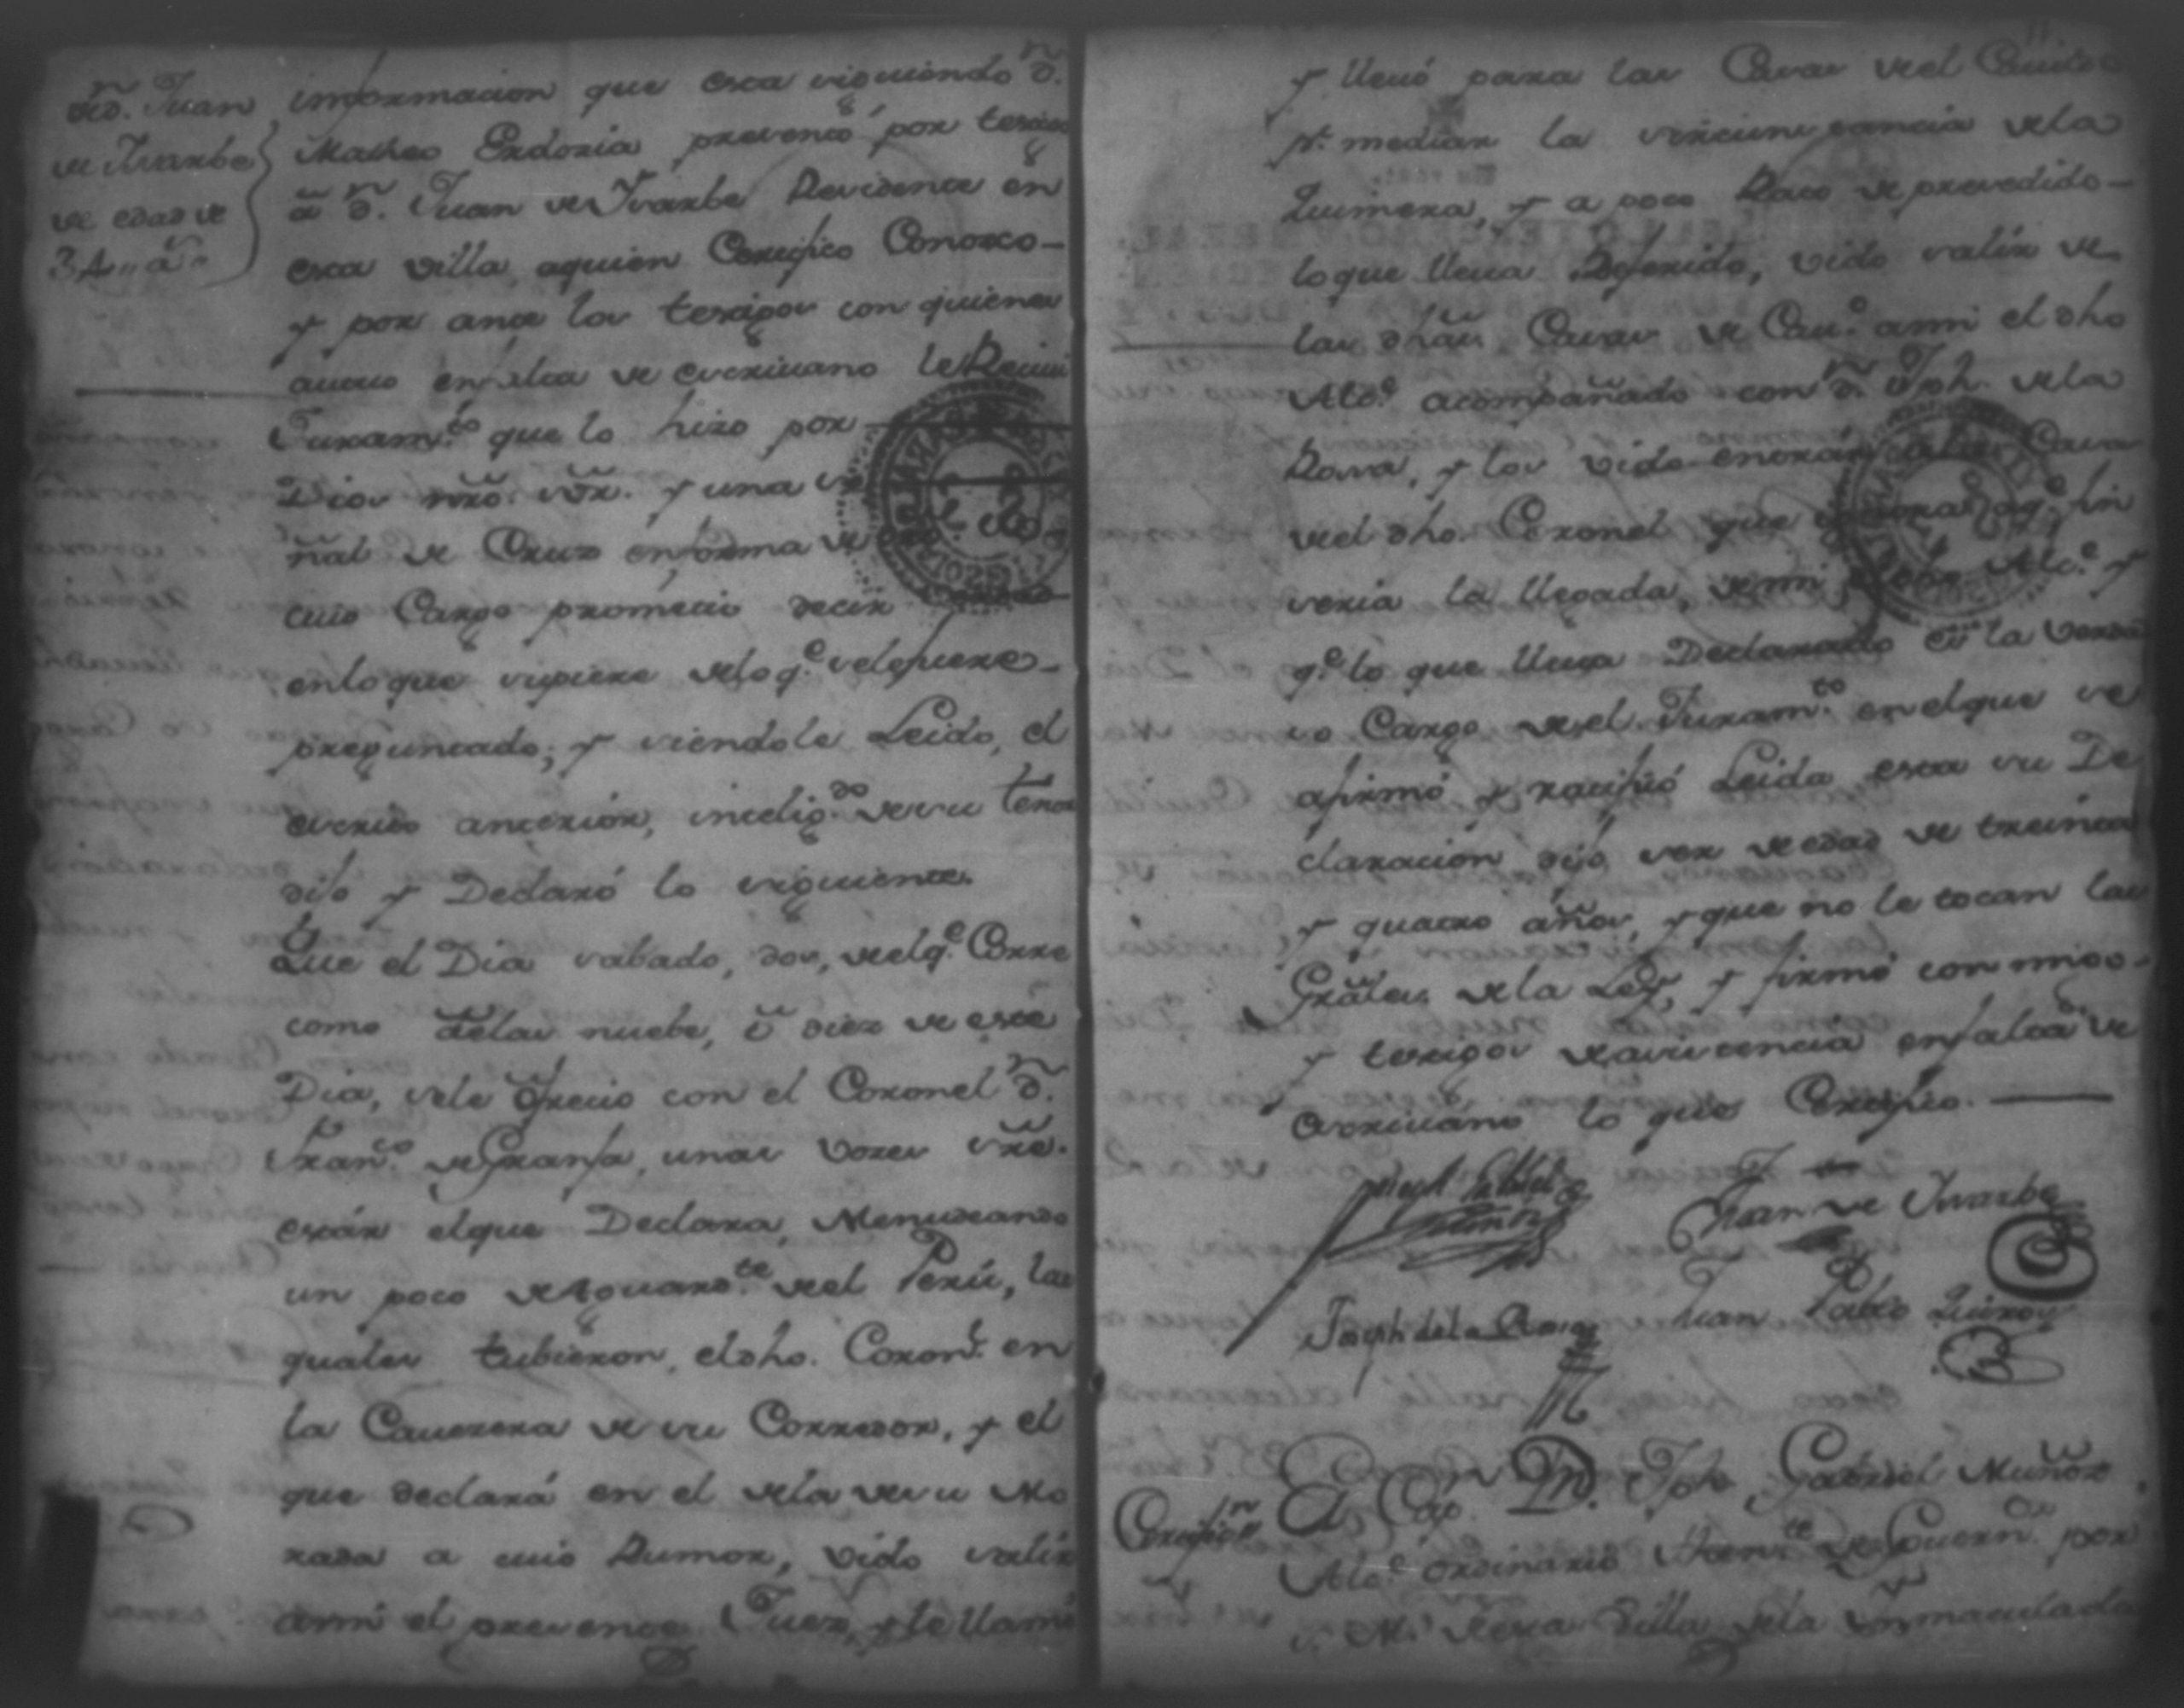 de d.n Juan
de Isarbe
de edad de
34,, a.s
informacion que esta siguiendo d.n
Matheo Endoria presentó por testigo
â d.n Juan de Isarbe Residente en
esta Villa, aquien Certifico Conosco
y por ante los testigos con quienes
actuo enfalta de escrivano le Reciui
Juram.to que lo hizo por
Dios nrô. sôr. y una se
ñal de Cruz enforma de
cuio Cargo prometio decir
enloque supiere delo q.e selefuere
preguntado; y siendole Leido, el
escrito anterior, intelig.do desu tenor
dijo y Declaró lo siguiente.
Que el Dia sabado, dos, delq.e Corre
como âelas nuebe, ô diez de este
Dia, sele ofrecio con el Coronel d.n
Fran.co de Granja, unas Vozes
están elque Declara, Menudeando
un poco deAguard.te del Perú, las
quales tubieron, eldho. Coron.l en
la Cauezera de su Corredor, y el
que declara en el dela desu Mo
rada a cuio Rumor, vido salir
ami el presente Juez, y le llamó
y llevó para las Casas del Cavildo
p.a mediar la circunstancia dela
Quimera, y a poco Rato de precedido
loque lleua Referido, vido salir de
las dhâs. Casas de Cau.o ami el dho
Alc.e acompañado con d.n Jph. dela
Rosa, y los vido entrár Casa
del dho. Coronel que
seria la llegada, demi Alc.e y
q.e lo que lleua Declarado es la Verdad
so Cargo del Juram.to enelque se
afirmó y ratificó Leida esta su De
claracion dijo ser de edad de treinta
y quatro años, y que no le tocan las
Grâles. dela Ley, y firmó con migo
y testigos deasistencia enfalta de
escriuano lo que Certifico.
Juan de Isarbe
Joseph dela Rosa
Juan Pablo Quiros
Certific.on
El Cap.n D.n Jph. Gabriel Muñoz
Alc.e ordinario Then.te de Guern.or por
s. M. desta Villa dela Ynmaculada